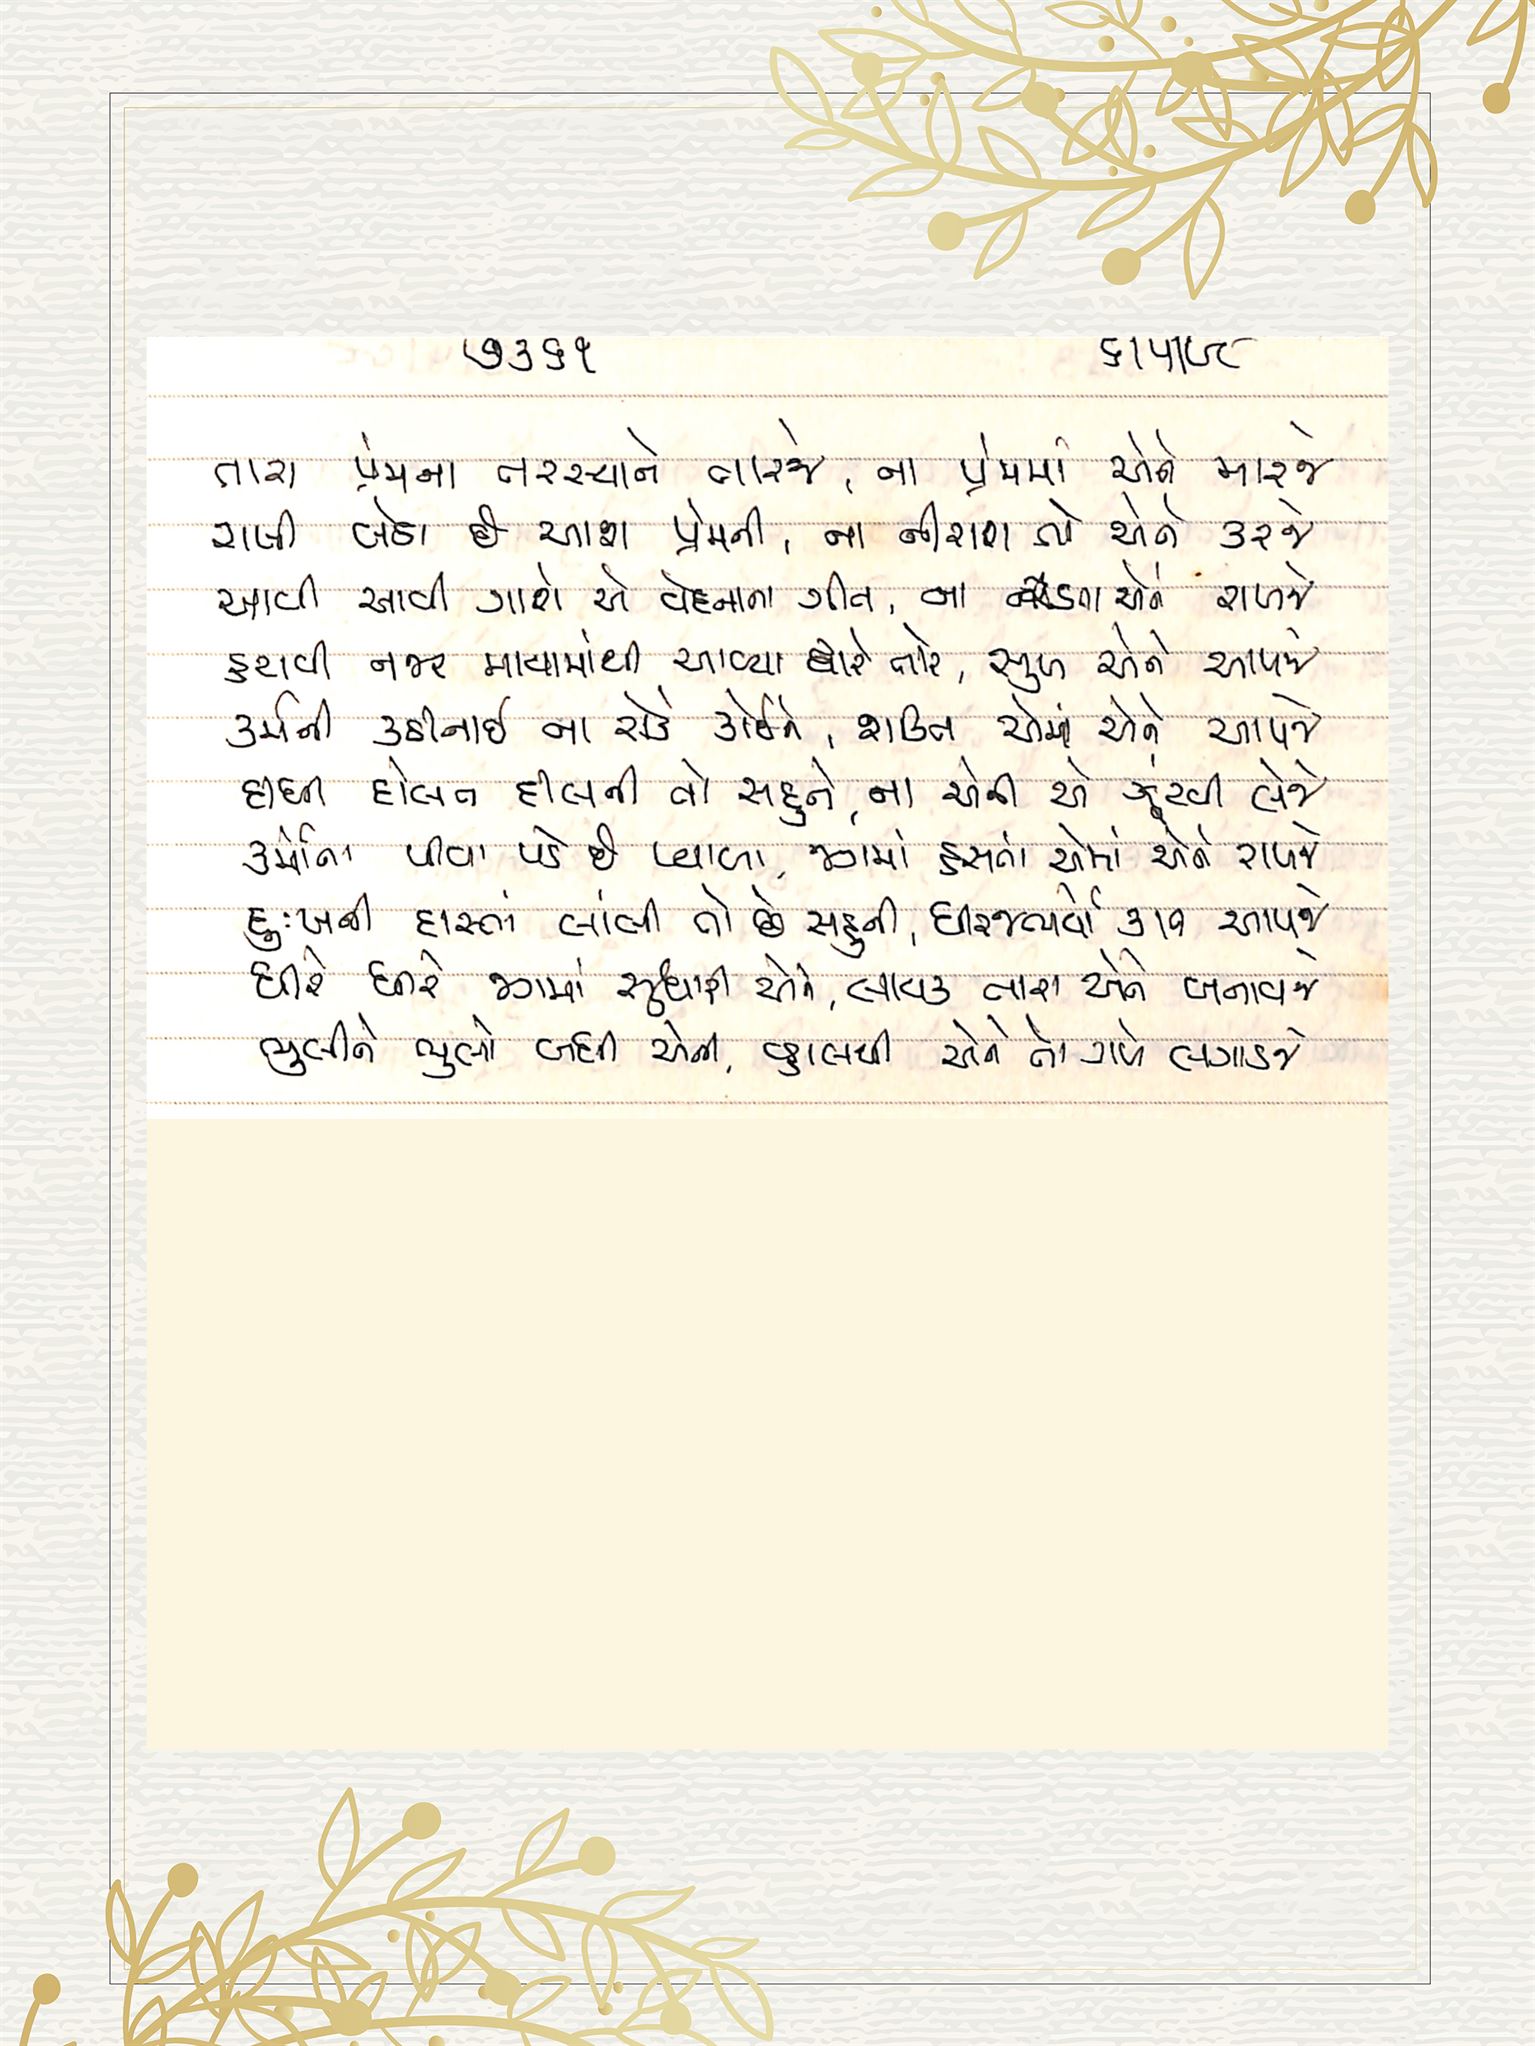 ૭૩૬૧ ૬।૫।૯૮
તારા પ્રેમના તરસ્યાને તારજે, ના પ્રેમમાં એને મારજે
રાખી બેઠા છે આશા પ્રેમની, ના નીરાશ તો એને કરજે
આવી આવી ગાશે એ વેદનાના ગીત, ના એને રાખજે
ફરાવી નજર માયામાંથી આવ્યા દ્વારે તારે, સુખ એને આપજે
કર્મની કઠીનાઈ ના રોકે કોઈને, શક્તિ એમાં એને આપજે
દીધી દોલત દીલની તો સહુને, ના એની એ ઝૂંટવી લેજે
કર્મોના પીવા પડે છે પ્યાલા, જગમાં હસતાં એમાં એને રાખજે
દુઃખની દાસ્તાં લાંબી તો છે સહુની, ધીરજભર્યા કાન આપજે
ધીરે ધીરે જગમાં સુધારી એને, લાયક તારા એને બનાવજે
ભુલીને ભુલો બધી એની, વ્હાલથી એને તો ગળે લગાડજે